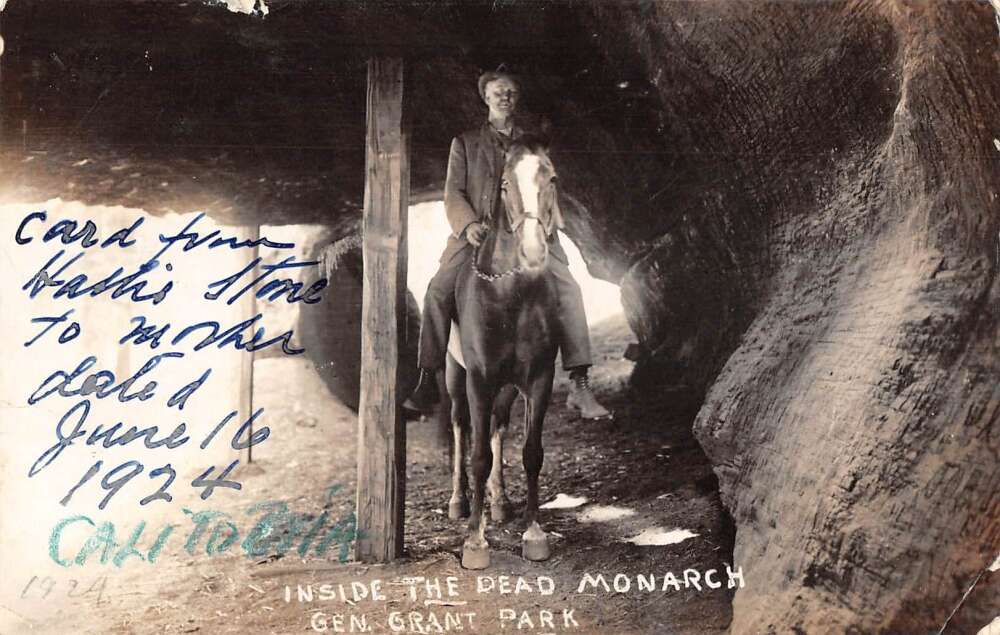 Card from
Hattie Stone
to mother
dated
June 16
1924
CALIFORNIA
1924
INSIDE THE DEAD MONARCH
GEN. GRANT PARK